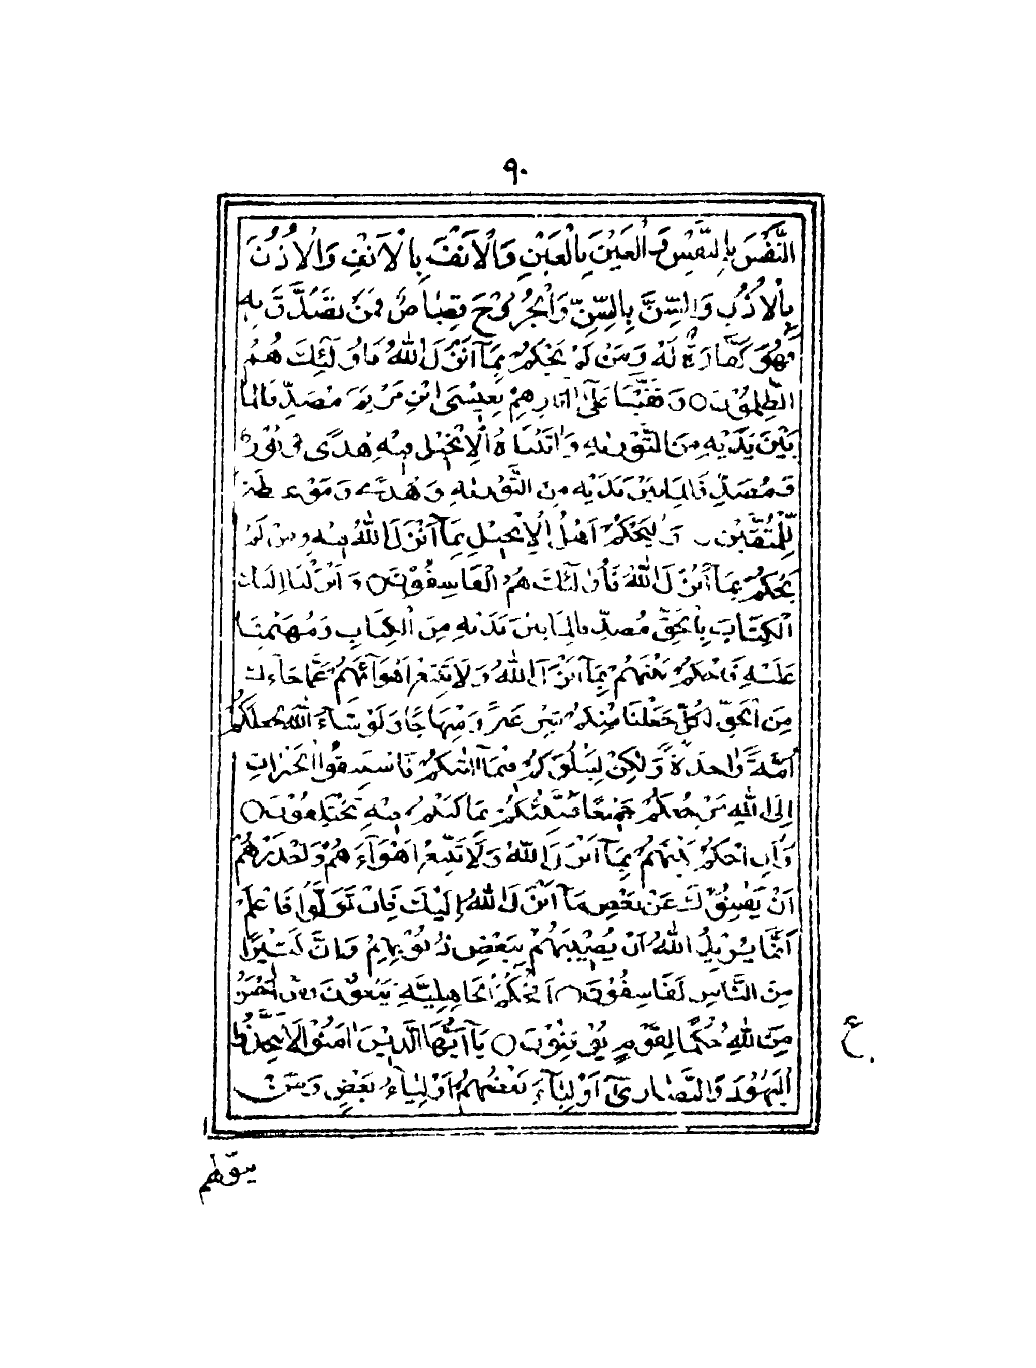 ٩٠
النَّفْسَ بِالنَّفْسِ وَالْعَيْنَ بِالْعَيْنِ وَالْاَنْفَ بِالْاَنْفِ وَالْاُذُنَ
بِالْاُذُنِ وَالسِّنَّ بِالسِّنِّ وَالْجُرُوْحَ قِصَاصٌ فَمَنْ تَصَدَّقَ بِهٖ
فَهُوَ كَفَّارَةٌ لَهٗ وَمَنْ لَمْ يَحْكُمْ بِمَآ اَنْزَلَ اللّٰهُ فَاُولٰٓئِكَ هُمُ
الظّٰلِمُوْنَ ○ وَقَفَّيْنَا عَلٰٓى اٰثَارِهِمْ بِعِيْسَى ابْنِ مَرْيَمَ مُصَدِّقًا لِمَا
بَيْنَ يَدَيْهِ مِنَ التَّوْرٰىةِ وَاٰتَيْنَاهُ الْاِنْجِيْلَ فِيْهِ هُدًى وَنُوْرٌ
وَمُصَدِّقًا لِمَا بَيْنَ يَدَيْهِ مِنَ التَّوْرٰىةِ وَهُدًى وَمَوْعِظَةً
لِّلْمُتَّقِيْنَ وَلْيَحْكُمْ اَهْلُ الْاِنْجِيْلِ بِمَآ اَنْزَلَ اللّٰهُ فِيْهِ وَمَنْ لَمْ
يَحْكُمْ بِمَآ اَنْزَلَ اللّٰهُ فَاُولٰٓئِكَ هُمُ الْفَاسِقُوْنَ ○ وَاَنْزَلْنَا اِلَيْكَ
الْكِتَابَ بِالْحَقِّ مُصَدِّقًا لِمَا بَيْنَ يَدَيْهِ مِنَ الْكِتَابِ وَمُهَيْمِنًا
عَلَيْهِ فَاحْكُمْ بَيْنَهُمْ بِمَآ اَنْزَلَ اللّٰهُ وَلَا تَتَّبِعْ اَهْوَآئَهُمْ عَمَّا جَآءَكَ
مِنَ الْحَقِّ لِكُلٍّ جَعَلْنَا مِنْكُمْ شِرْعَةً وَمِنْهَاجًا وَلَوْ شَآءَ اللّٰهُ لَجَعَلَكُمْ
اُمَّةً وَاحِدَةً وَلٰكِنْ لِيَبْلُوَكُمْ فِيْمَآ اٰتٰىكُمْ فَاسْتَبِقُوا الْخَيْرَاتِ
اِلَى اللّٰهِ مَرْجِعُكُمْ جَمِيْعًا فَيُنَبِّئُكُمْ بِمَا كُنْتُمْ فِيْهِ تَخْتَلِفُوْنَ ○
وَاَنِ احْكُمْ بَيْنَهُمْ بِمَآ اَنْزَلَ اللّٰهُ وَلَا تَتَّبِعْ اَهْوَآءَهُمْ وَاحْذَرْهُمْ
اَنْ يَفْتِنُوْكَ عَنْ بَعْضِ مَآ اَنْزَلَ اللّٰهُ اِلَيْكَ فَاِنْ تَوَلَّوْا فَاعْلَمْ
اَنَّمَا يُرِيْدُ اللّٰهُ اَنْ يُصِيْبَهُمْ بِبَعْضِ ذُنُوْبِهِمْ وَاِنَّ كَثِيْرًا
مِنَ النَّاسِ لَفَاسِقُوْنَ ○ اَفَحُكْمَ الْجَاهِلِيَّةِ يَبْغُوْنَ وَمَنْ اَحْسَنُ
مِنَ اللّٰهِ حُكْمًا لِقَوْمٍ يُوْقِنُوْنَ ○ يَآ اَيُّهَا الَّذِيْنَ اٰمَنُوْا لَا تَتَّخِذُوا
الْيَهُوْدَ وَالنَّصَارٰىٓ اَوْلِيَآءَ بَعْضُهُمْ اَوْلِيَآءُ بَعْضٍ وَمَنْ
ع
يتولهم